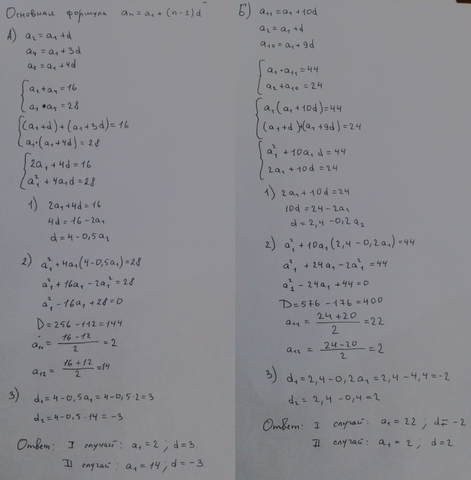 Основная формула an = a1 + (n-1)d
А) a2 = a1+d
a4 = a1+3d
a5 = a1+4d
{ a2 + a4 = 16
a1 • a5 = 28
{ (a1+d) + (a1+3d) = 16
a1·(a1+4d) = 28
{ 2a1 + 4d = 16
a1² + 4a1d = 28
1) 2a1+4d = 16
4d = 16-2a1
d = 4-0,5a1
2) a1² + 4a1(4-0,5a1) = 28
a1² + 16a1 - 2a1² = 28
a1² - 16a1 + 28 = 0
D = 256 - 112 = 144
a11 = (16-12)/2 = 2
a12 = (16+12)/2 = 14
3) d1 = 4-0,5a1 = 4-0,5·2 = 3
d2 = 4-0,5·14 = -3
Ответ: I случай: a1 = 2; d = 3
II случай: a1 = 14; d = -3
Б) a11 = a1 + 10d
a2 = a1+d
a10 = a1+9d
{ a1 · a11 = 44
a2 + a10 = 24
{ a1(a1+10d) = 44
(a1+d)+(a1+9d) = 24
{ a1² + 10a1d = 44
2a1 + 10d = 24
1) 2a1 + 10d = 24
10d = 24-2a1
d = 2,4-0,2a1
2) a1² + 10a1(2,4-0,2a1) = 44
a1² + 24a1 - 2a1² = 44
a1² - 24a1 + 44 = 0
D = 576 - 176 = 400
a11 = (24+20)/2 = 22
a12 = (24-20)/2 = 2
3) d1 = 2,4-0,2a1 = 2,4-4,4 = -2
d2 = 2,4-0,4 = 2
Ответ: I случай: a1 = 22; d = -2
II случай: a1 = 2; d = 2